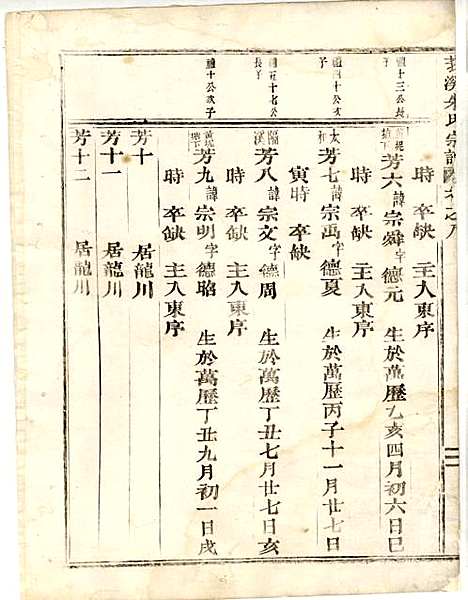 宗譜 卷之九
德十三公長子
芳六 諱宗舜 字德元 生於萬歷乙亥四月初六日巳
時 卒缺 主入東序
德四十公次子
太和 芳七 諱宗禹 字德夏 生於萬歷丙子十一月廿七日
寅時 卒缺
芳八 諱宗文 字德周 生於萬歷丁丑七月廿七日亥
時 卒缺 主入東序
德十公次子
黃坭坵下 芳九 諱宗明 字德昭 生於萬歷丁丑九月初一日戌
時 卒缺 主入東序
芳十 居龍川
芳十一 居龍川
芳十二 居龍川